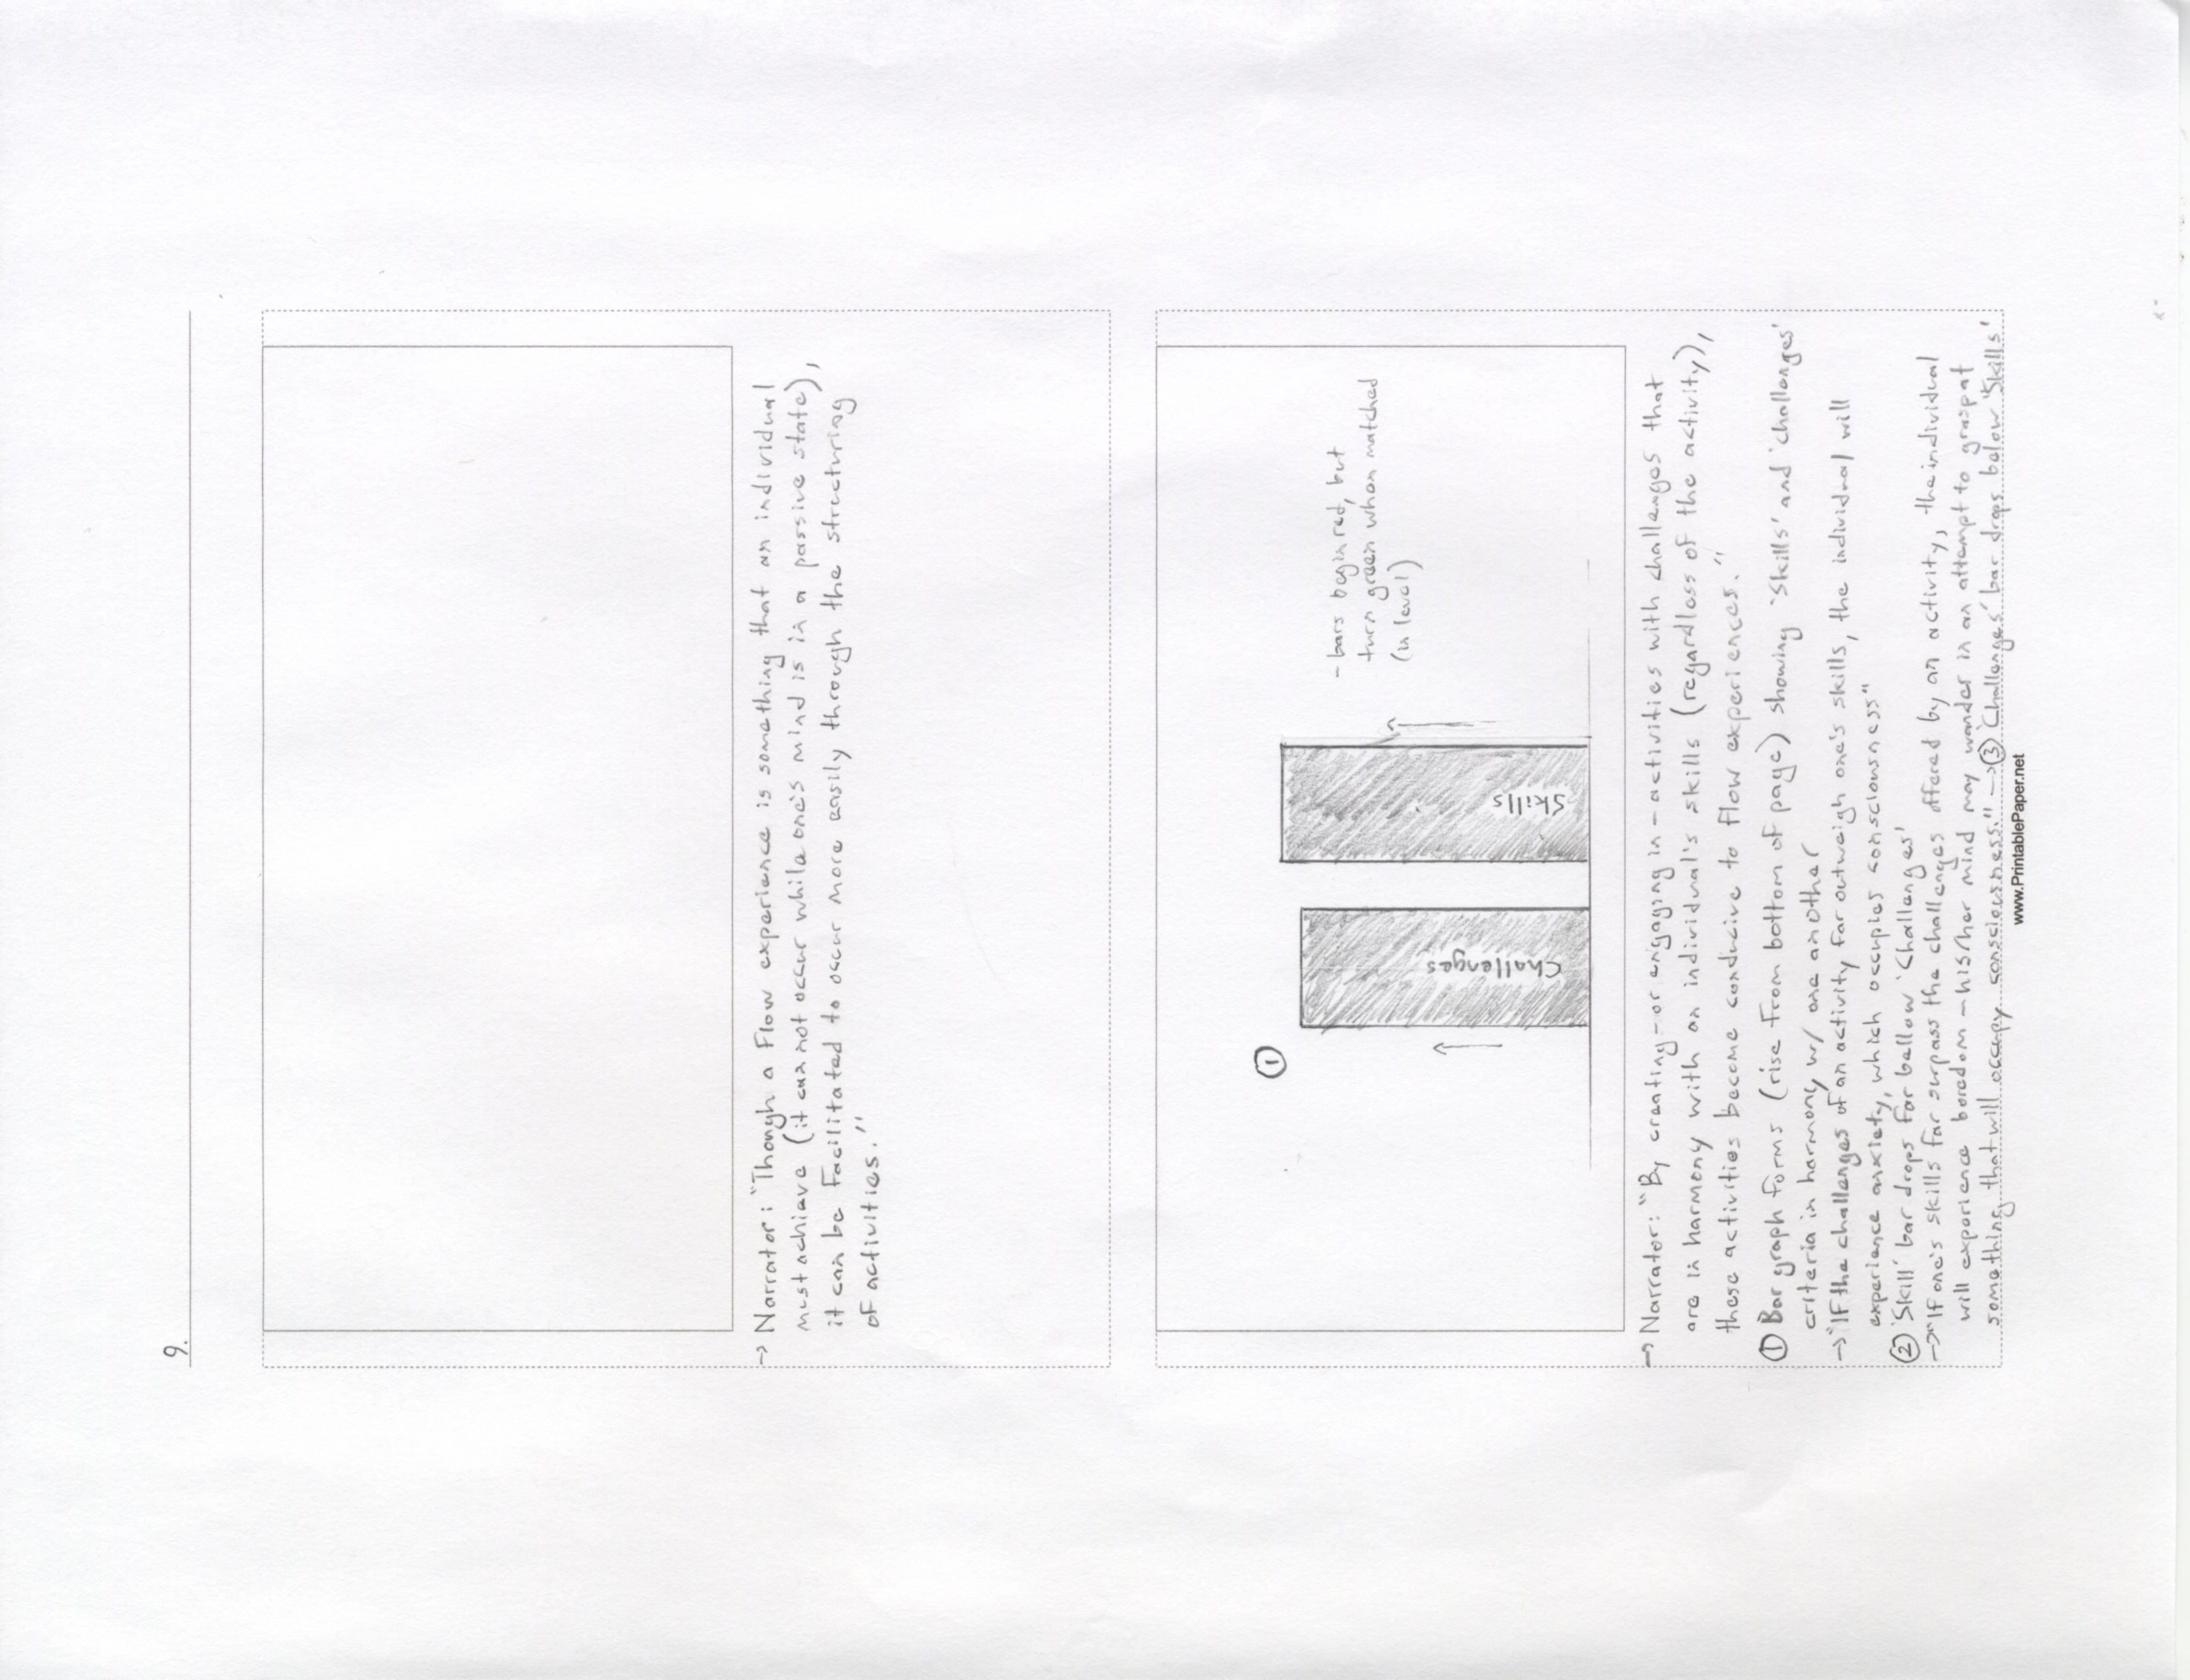 9.
→ Narrator: "Though a flow experience is something that an individual
must achieve (it can not occur while one's mind is in a passive state),
it can be facilitated to occur more easily through the structuring
of activities."
①
- bars begin red, but
turn green when matched
(in level)
Challenges
Skills
→ Narrator: "By creating - or engaging in - activities with challenges that
are in harmony with an individual's skills (regardless of the activity),
these activities become conducive to flow experiences."
① Bar graph forms (rise from bottom of page) showing 'Skills' and 'challenges'
criteria in harmony w/ one another
→ "If the challenges of an activity far outweigh one's skills, the individual will
experience anxiety, which occupies consciousness"
② 'Skill' bar drops far bellow 'Challenges'
→ "If one's skills far surpass the challenges offered by an activity, the individual
will experience boredom - his/her mind may wander in an attempt to grasp at
something that will occupy consciousness." → ③ 'Challenges' bar drops below 'Skills'
www.PrintablePaper.net